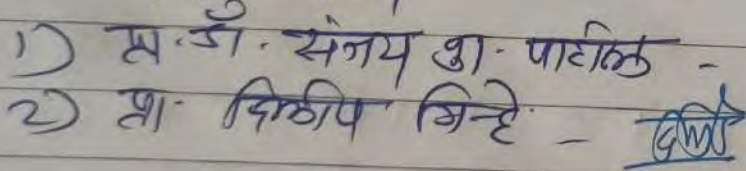 1) प्रा. डॉ. संजय शा. पाटील -
2) प्रा. दिलीप गिऱ्हे -